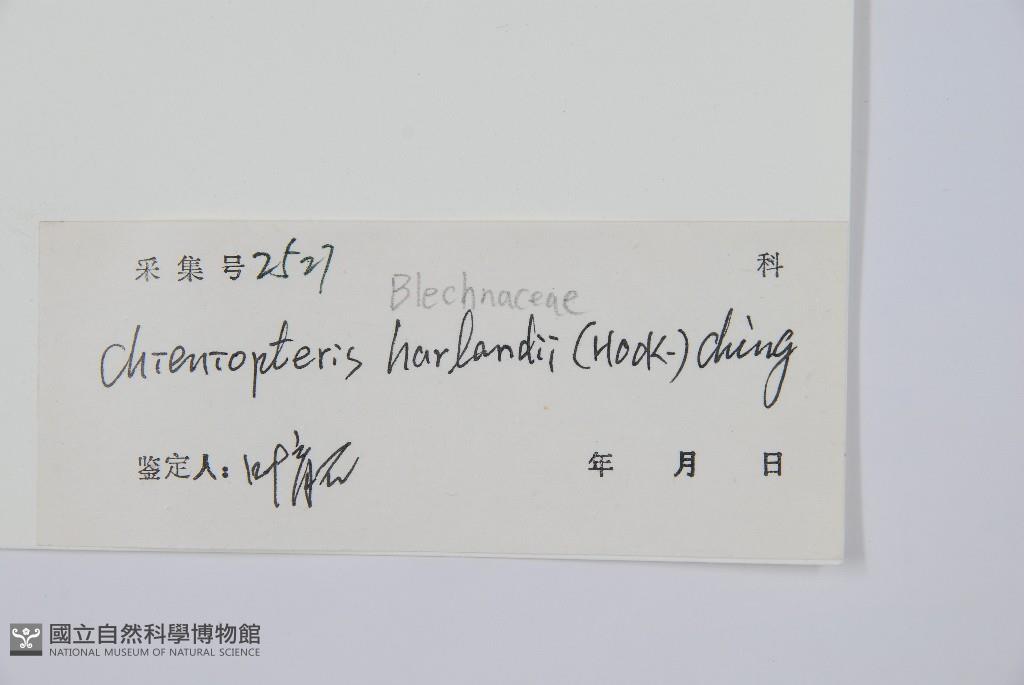 采集号 2527 科
Blechnaceae
Chieniopteris harlandii (Hook.) Ching
鉴定人: 叶育石 年 月 日
國立自然科學博物館
NATIONAL MUSEUM OF NATURAL SCIENCE